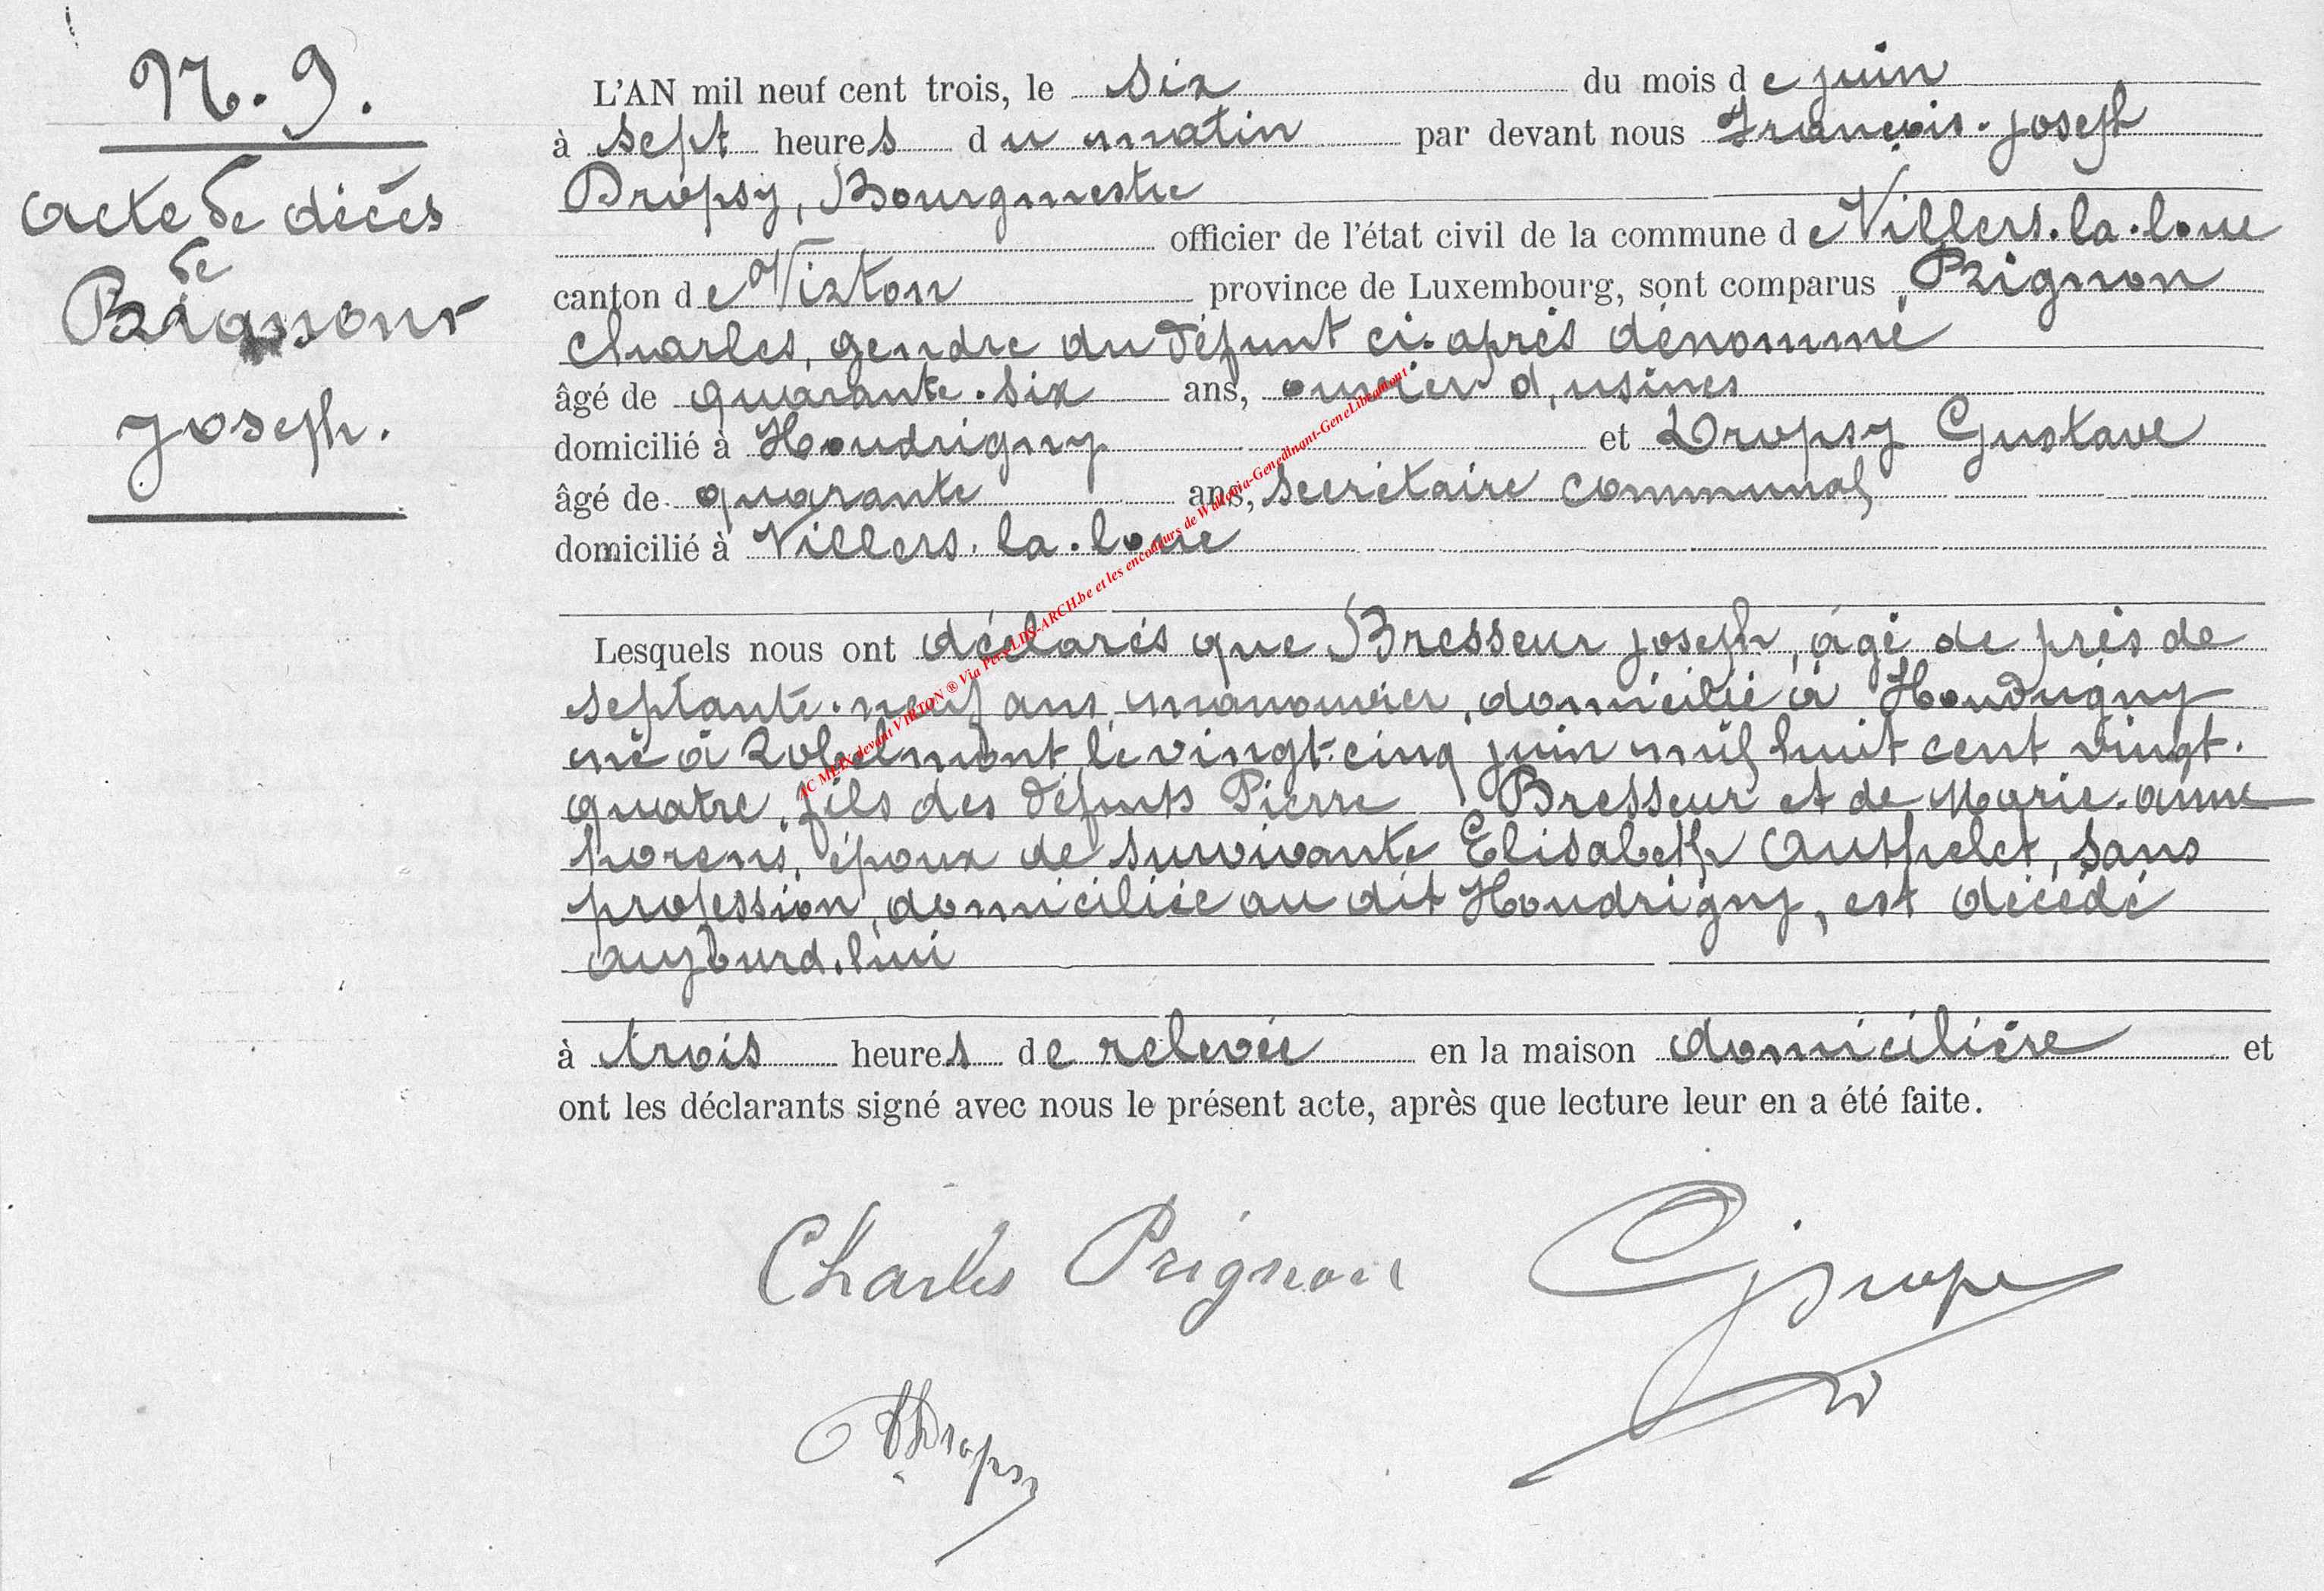 N. 9.
acte de décès
de
Joseph.
L'AN mil neuf cent trois, le six du mois de juin
à sept heures du matin par devant nous François-joseph
Dropsy, Bourgmestre
officier de l'état civil de la commune de Villers-la-loue
canton de Virton province de Luxembourg, sont comparus Prignon
Charles, gendre du défunt ci-après dénommé
âgé de quarante-six ans, ouvrier d'usines
domicilié à Houdrigny et Dropsy Gustave
âgé de quarante ans, secrétaire communal
domicilié à Villers-la-loue
Lesquels nous ont déclarés que Bresseur joseph, âgé de près de
septante-neuf ans, manouvrier, domicilié à Houdrigny
né à Robelmont, le vingt-cinq juin mil huit cent vingt-
quatre, fils des défunts Pierre Bresseur et de Marie-anne
horens, époux de survivante Elisabeth Authelet, sans
profession, domiciliée au dit Houdrigny, est décédé
aujourd'hui
à trois heures de relevée en la maison domicilière et
ont les déclarants signé avec nous le présent acte, après que lecture leur en a été faite.
AC MEIX-devant VIRTON ® Via Pers-LDS-ARCH.be et les encodeurs de Wallonia-Genedinant-GeneLibramont
Charles Prignon